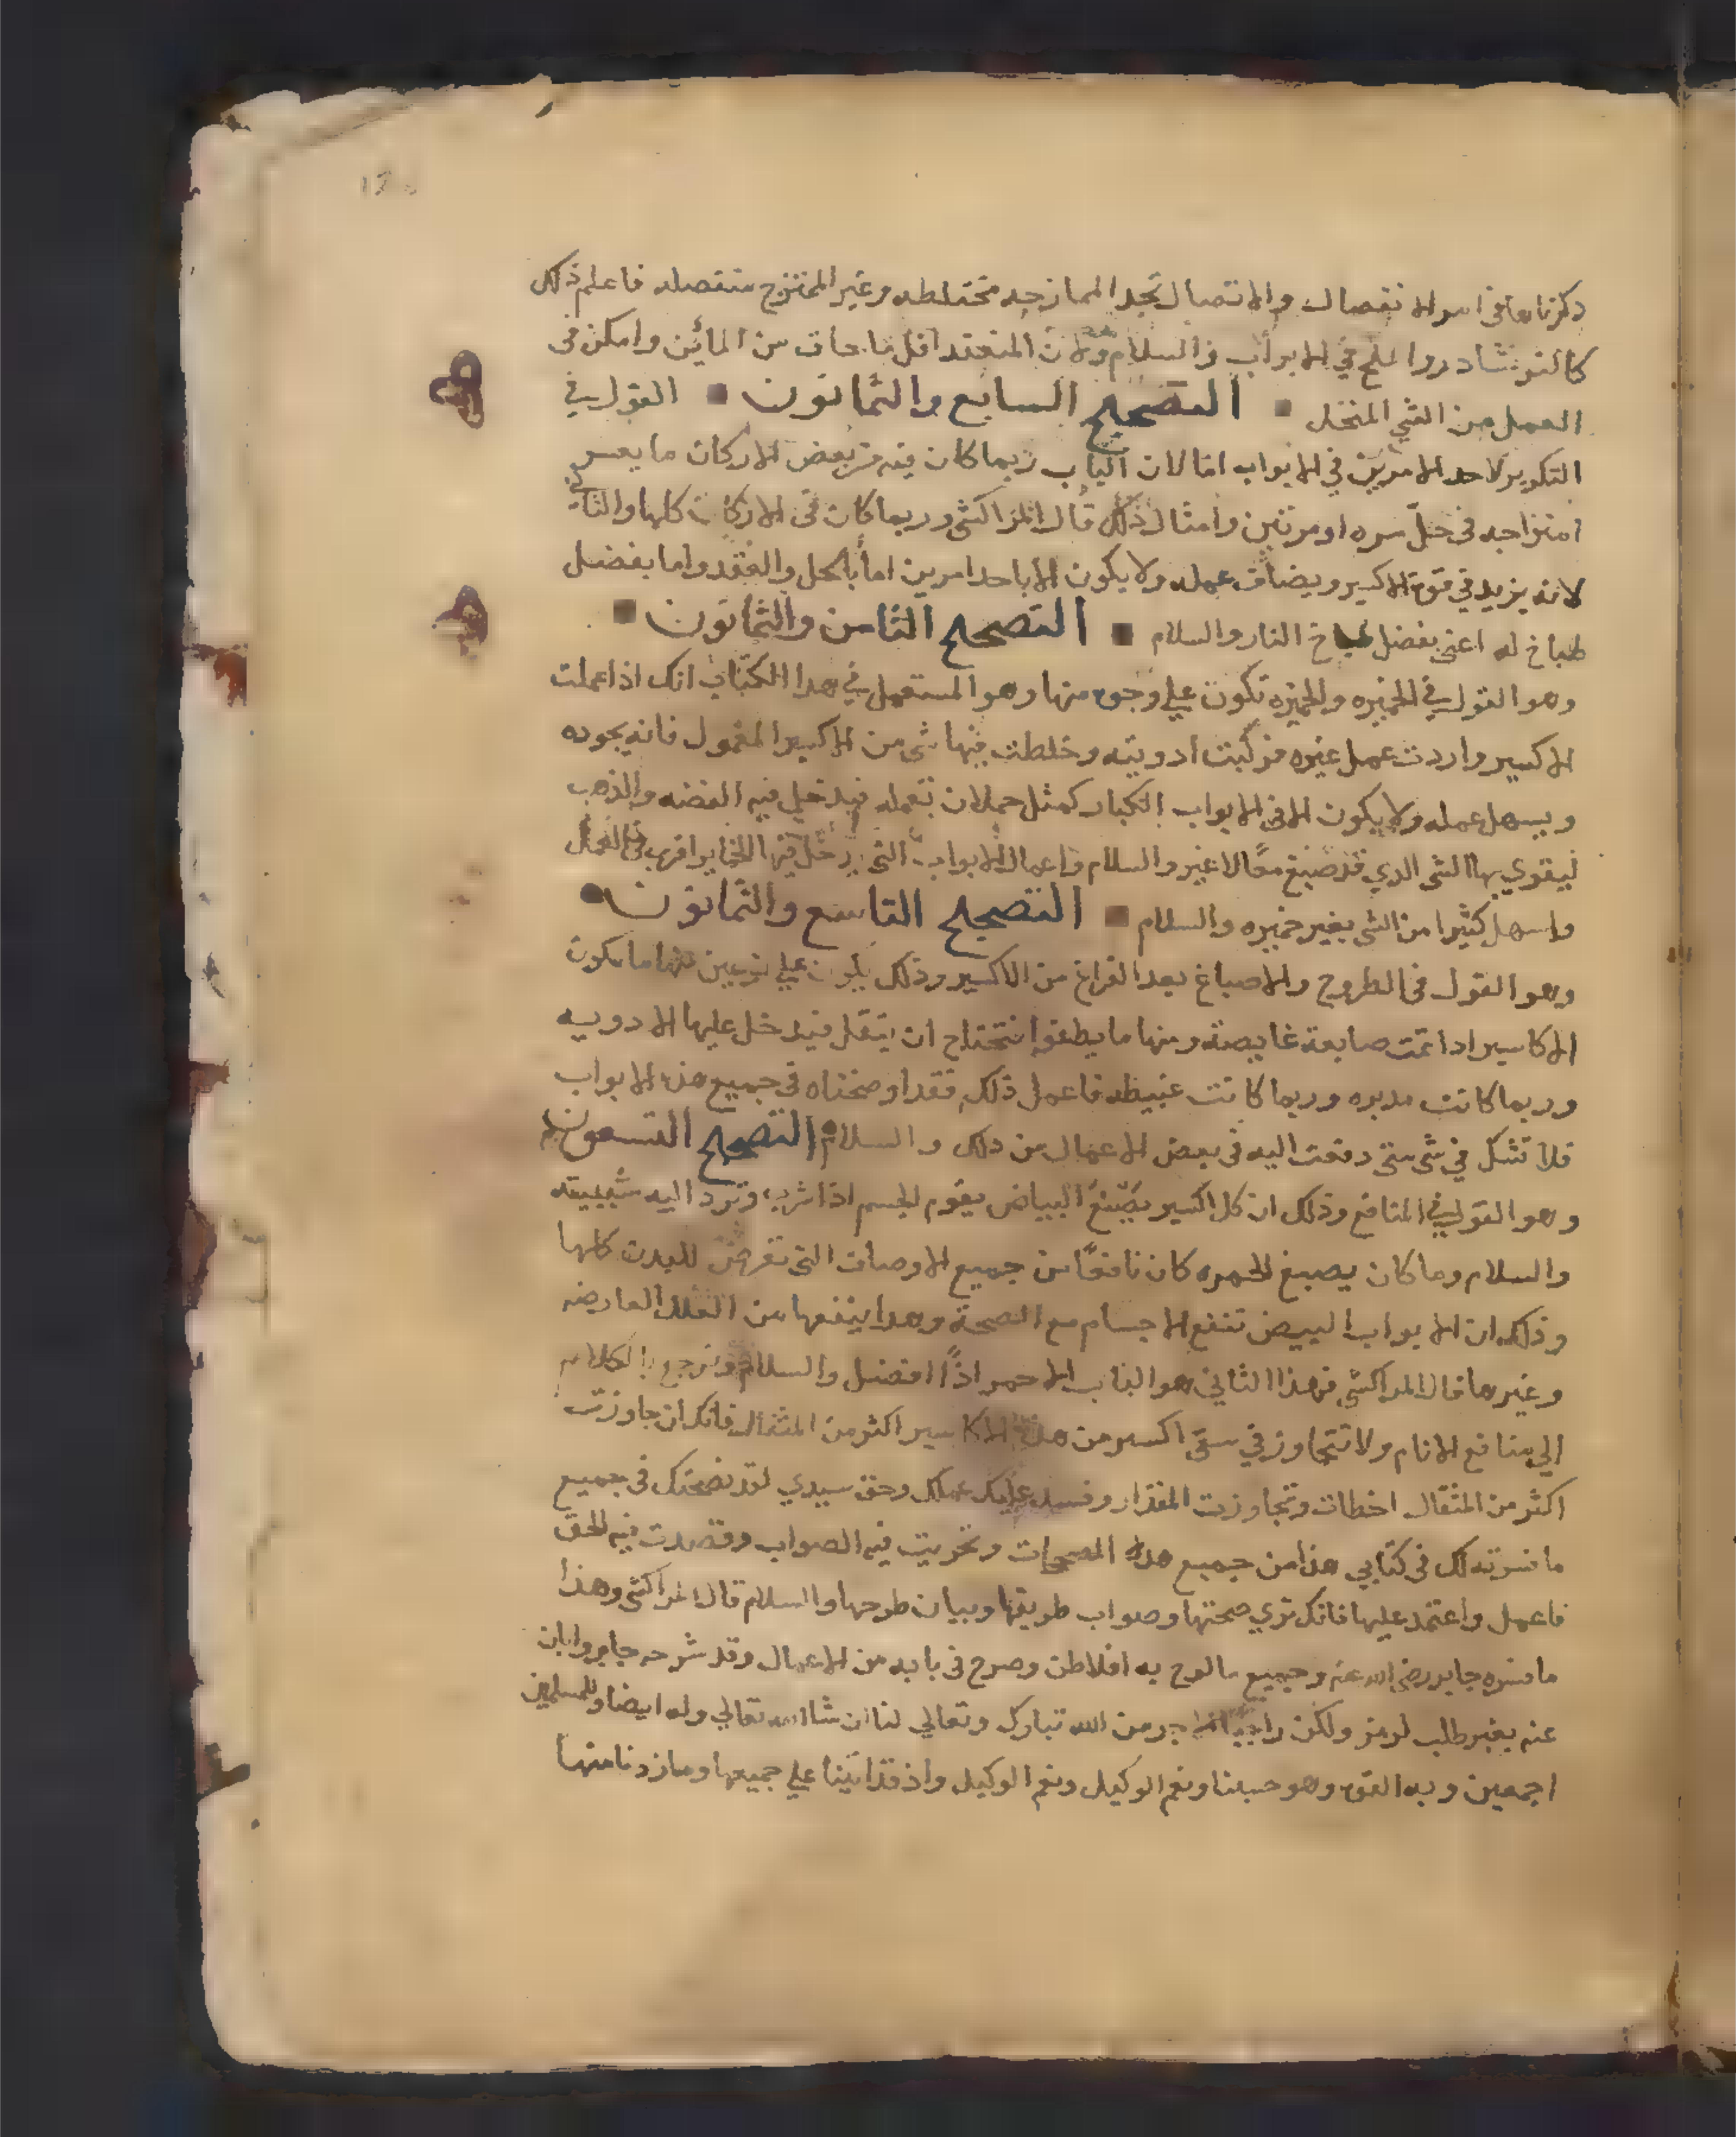 ذكرناها في امر الانفصال والاتصال تجد الممازجه مختلطه وغير الممتزج منفصله فاعلم ذلك
كالنوشادر والملح في الابواب والسلام ولان المنعقد اقل ما جاف من المائين وامكن في
العمل من الشي المنحل التصحيح السابع والثمانون القول في
التكرير لاحد الامرين في الابواب اما لان الباب ربما كان فيه من بعض الاركان ما يعسر
امتزاجه في حل مره او مرتين وامثال ذلك قال المراكشي وربما كان في الاركان كلها والثاني
لانه يزيد في قوة الاكسير ويضاف عمله ولا يكون الا باحد امرين اما بالحل والعقد واما بفضل
طباخ له اعني بفضل طباخ النار والسلام التصحيح الثامن والثمانون
وهو القول في الخميره والخميره تكون علي وجوه منها وهو المستعمل في هذا الكتاب انك اذا عملت
الاكسير واردت عمل غيره فركبت ادويته وخلطت فيها شي من الاكسير المعمول فانه يجوده
ويسهل عمله ولا يكون الا في الابواب الكبار كمثل حملان تعمله فيدخل فيه الفضه والذهب
ليقوي بها الشي الذي قد صبغ معا لا غير والسلام واعمال الابواب التي يدخل فيها الخماير اقرب في العمل
واسهل كثيرا من الشي بغير خميره والسلام التصحيح التاسع والثمانون
وهو القول في الطروح والاصباغ بعد الفراغ من الاكسير وذلك يكون علي نوعين منها ما يكون
الاكاسير اذا تمت صابغة غايصة ومنها ما يطفوا فتحتاج ان يثقل فيدخل عليها الادويه
وربما كانت مدبره وربما كانت عبيطه فاعمل ذلك فقد اوضحناه في جميع هذه الابواب
فلا تشك في شي متي دفعت اليه في بعض الاعمال من ذلك والسلام التصحيح التسعون
وهو القول في المنافع وذلك ان كل اكسير يصبغ البياض يقوم الجسم اذا شرب وترد اليه شبيبته
والسلام وما كان يصبغ الحمره كان نافعا من جميع الاوصاف التي تعرض للبدن كلها
وذلك ان الابواب البيض تنفع الاجسام مع الصحة وهذا ينفعها من العلل العارضه
وغيرها قال المراكشي فهذا الثاني هو الباب الاحمر اذًا افضل والسلام ونرجع بالكلام
الي منافع الانام ولا تتجاوز في سقي اكسير من هذه الاكاسير اكثر من المثقال فانك ان جاوزت
اكثر من المثقال اخطات وتجاوزت المقدار وفسد عليك عملك وحق سيدي لقد نصحتك في جميع
ما فسرته لك في كتابي هذا من جميع هذه المصححات وتحريت فيه الصواب وقصدت فيه الحق
فاعمل واعتمد عليها فانك تري صحتها وصواب طريقها وبيان طرحها والسلام قال المراكشي وهذا
ما فسره جابر رضي الله عنه وجميع ما لوح به افلاطن وصرح في بابه من الاعمال وقد شرحه جابر وابان
عنه بغير طلب لرمز ولكن راجيا اجر من الله تبارك وتعالي لنا ان شا الله تعالي وله ايضا وللمسلمين
اجمعين وبه القوة وهو حسبنا ونعم الوكيل ونعم الوكيل واذ قد اتينا علي جميعها وما زدنا منها